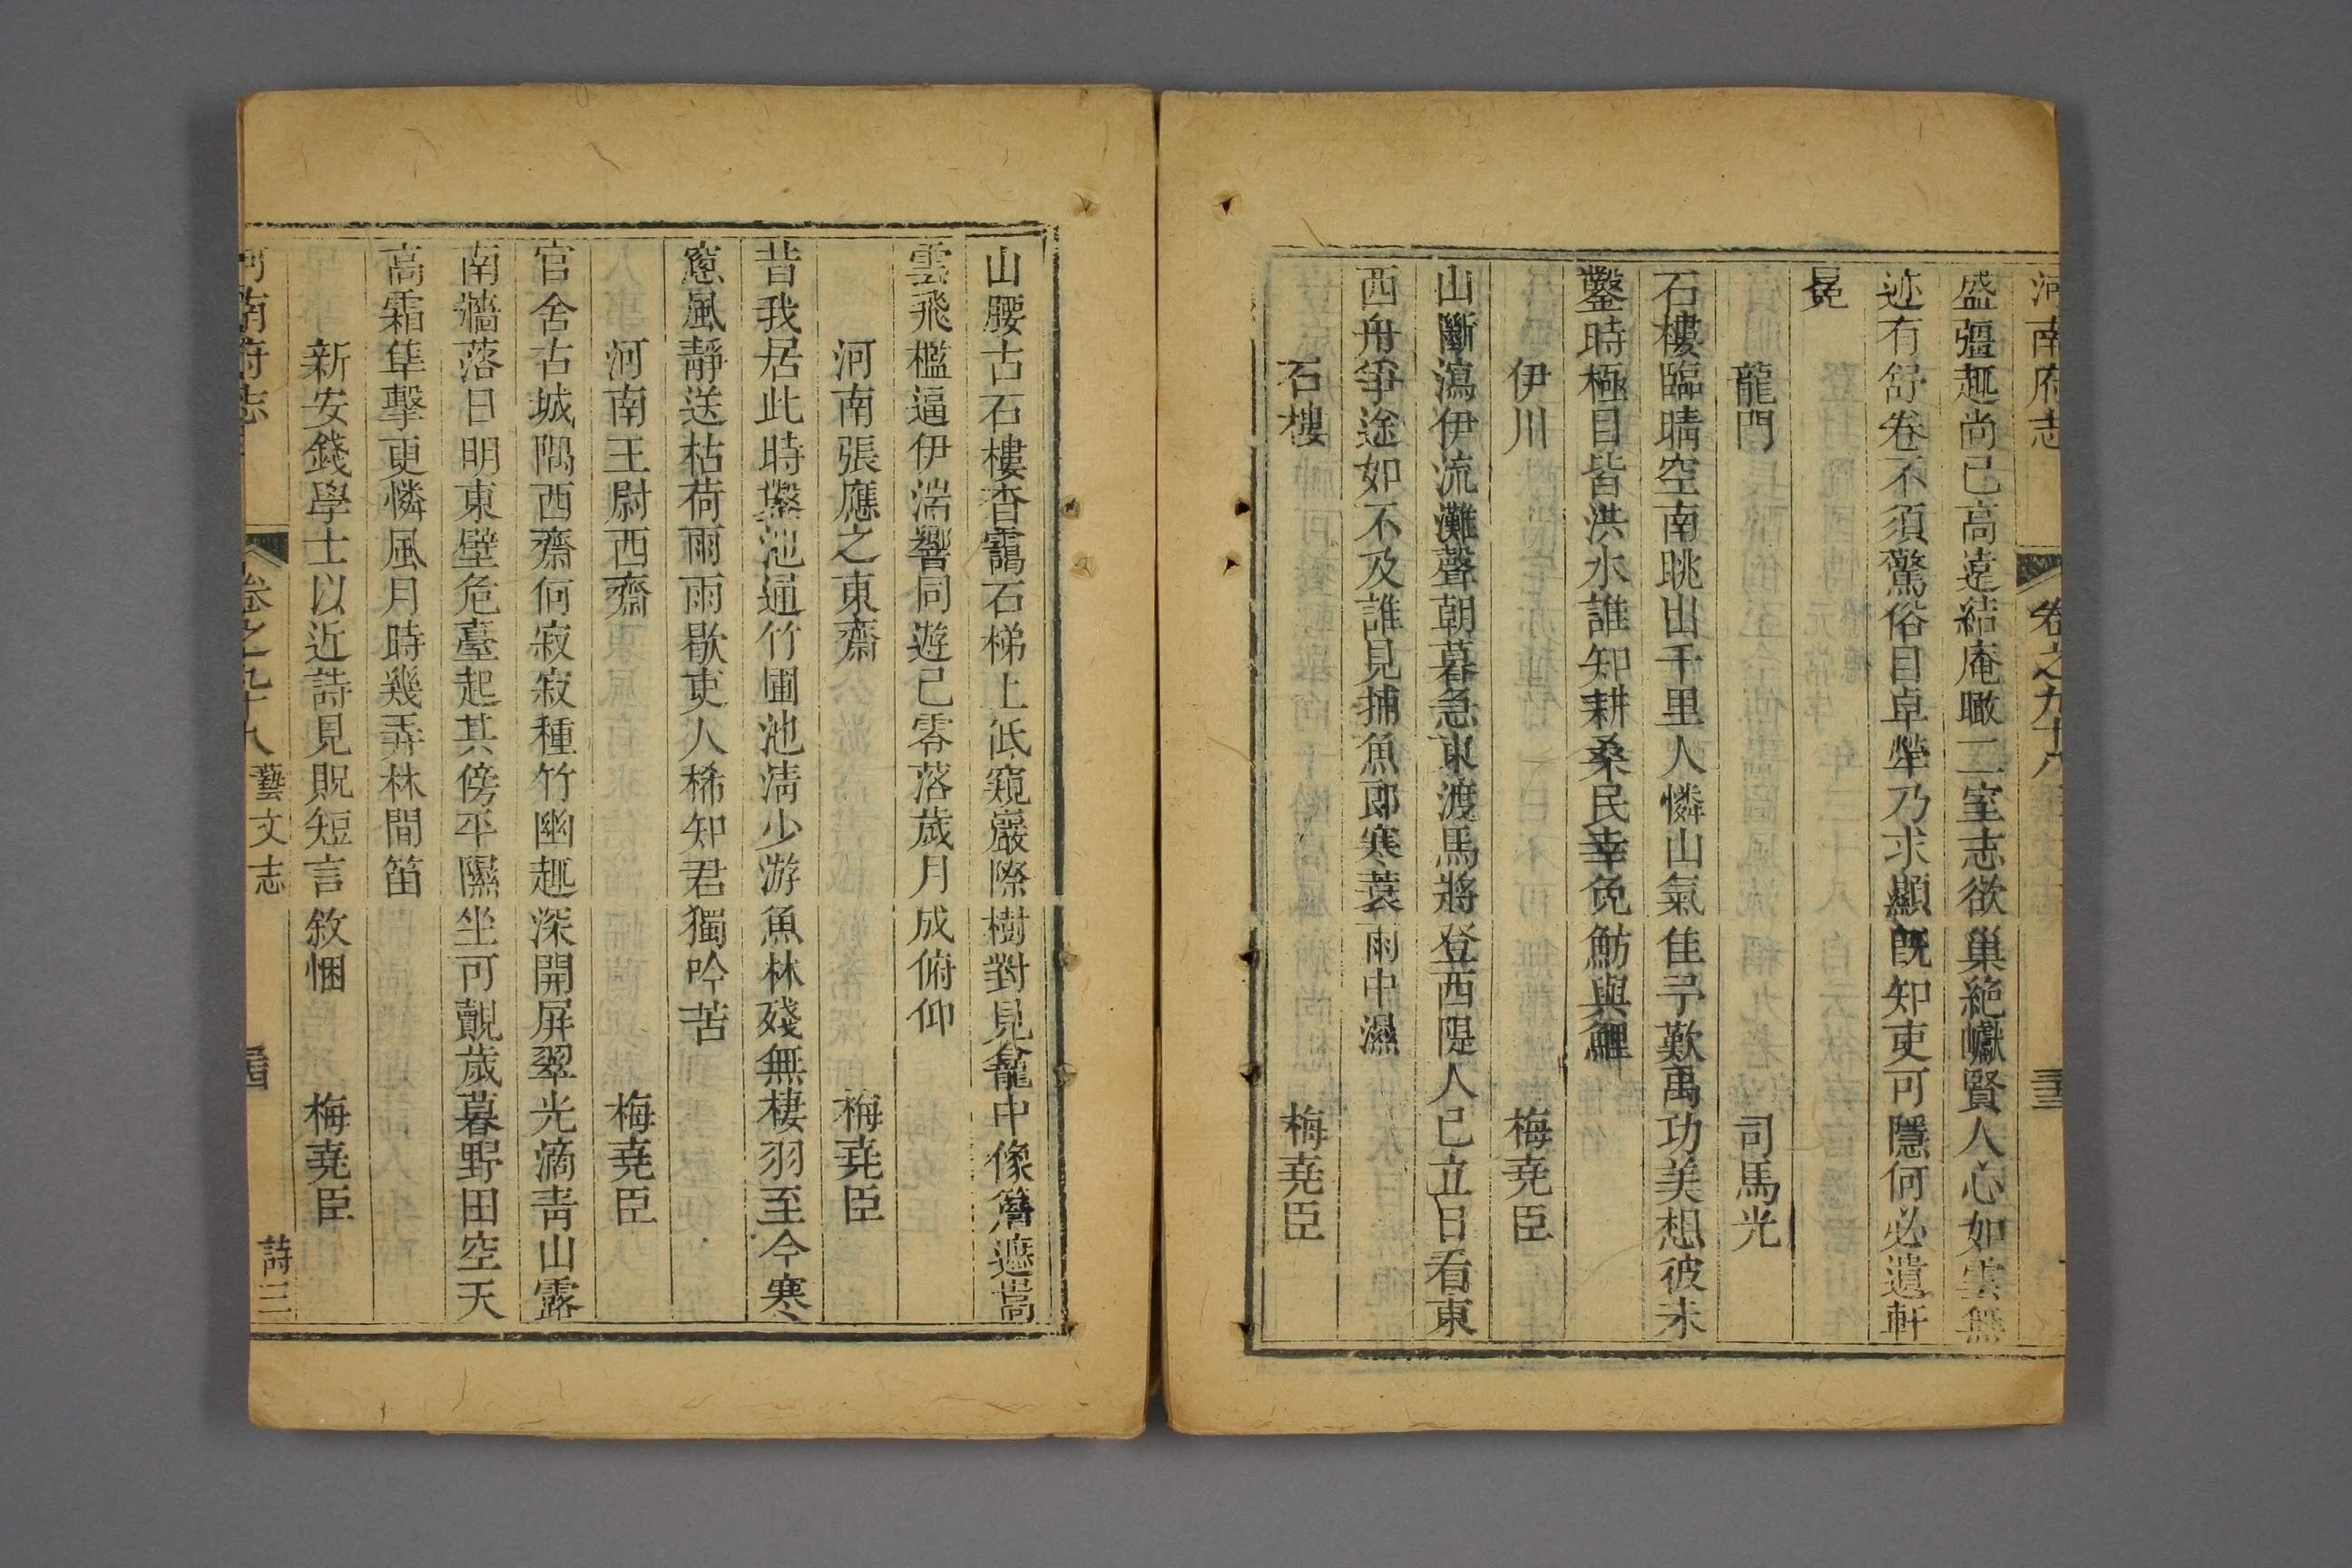 河南府志 卷之九十八 三
盛彊趣尚已高遠結庵瞰二室志欲巢絶巘賢人心如雲無
迹有舒卷不須驚俗目卓犖乃求顯旣知吏可隱何必遺軒
冕
龍門 司馬光
石樓臨晴空南眺山千里人憐山氣佳予歎禹功美想彼未
鑿時極目皆洪水誰知耕桑民幸免魴與鯉
伊川 梅堯臣
山斷瀉伊流灘聲朝暮急東渡馬將登西隄人已立日看東
西舟爭途如不及誰見捕魚郎寒蓑雨中濕
石樓 梅堯臣
山腰古石樓杳靄石梯上低窺巖際樹對見龕中像簷遮嵩
雲飛檻逼伊湍響同遊已零落歲月成俯仰
河南張應之東齋 梅堯臣
昔我居此時鑿池通竹圃池淸少游魚林殘無棲羽至今寒
窻風靜送枯荷雨雨歇吏人稀知君獨吟苦
河南王尉西齋 梅堯臣
官舍古城隅西齋何寂寂種竹幽趣深開屏翠光滴靑山露
南牆落日明東壁危臺起其傍平隰坐可覿歲暮野田空天
高霜隼擊更憐風月時幾弄林間笛
新安錢學士以近詩見貺短言敘悃 梅堯臣
河南府志 卷之九十八 藝文志 詩三